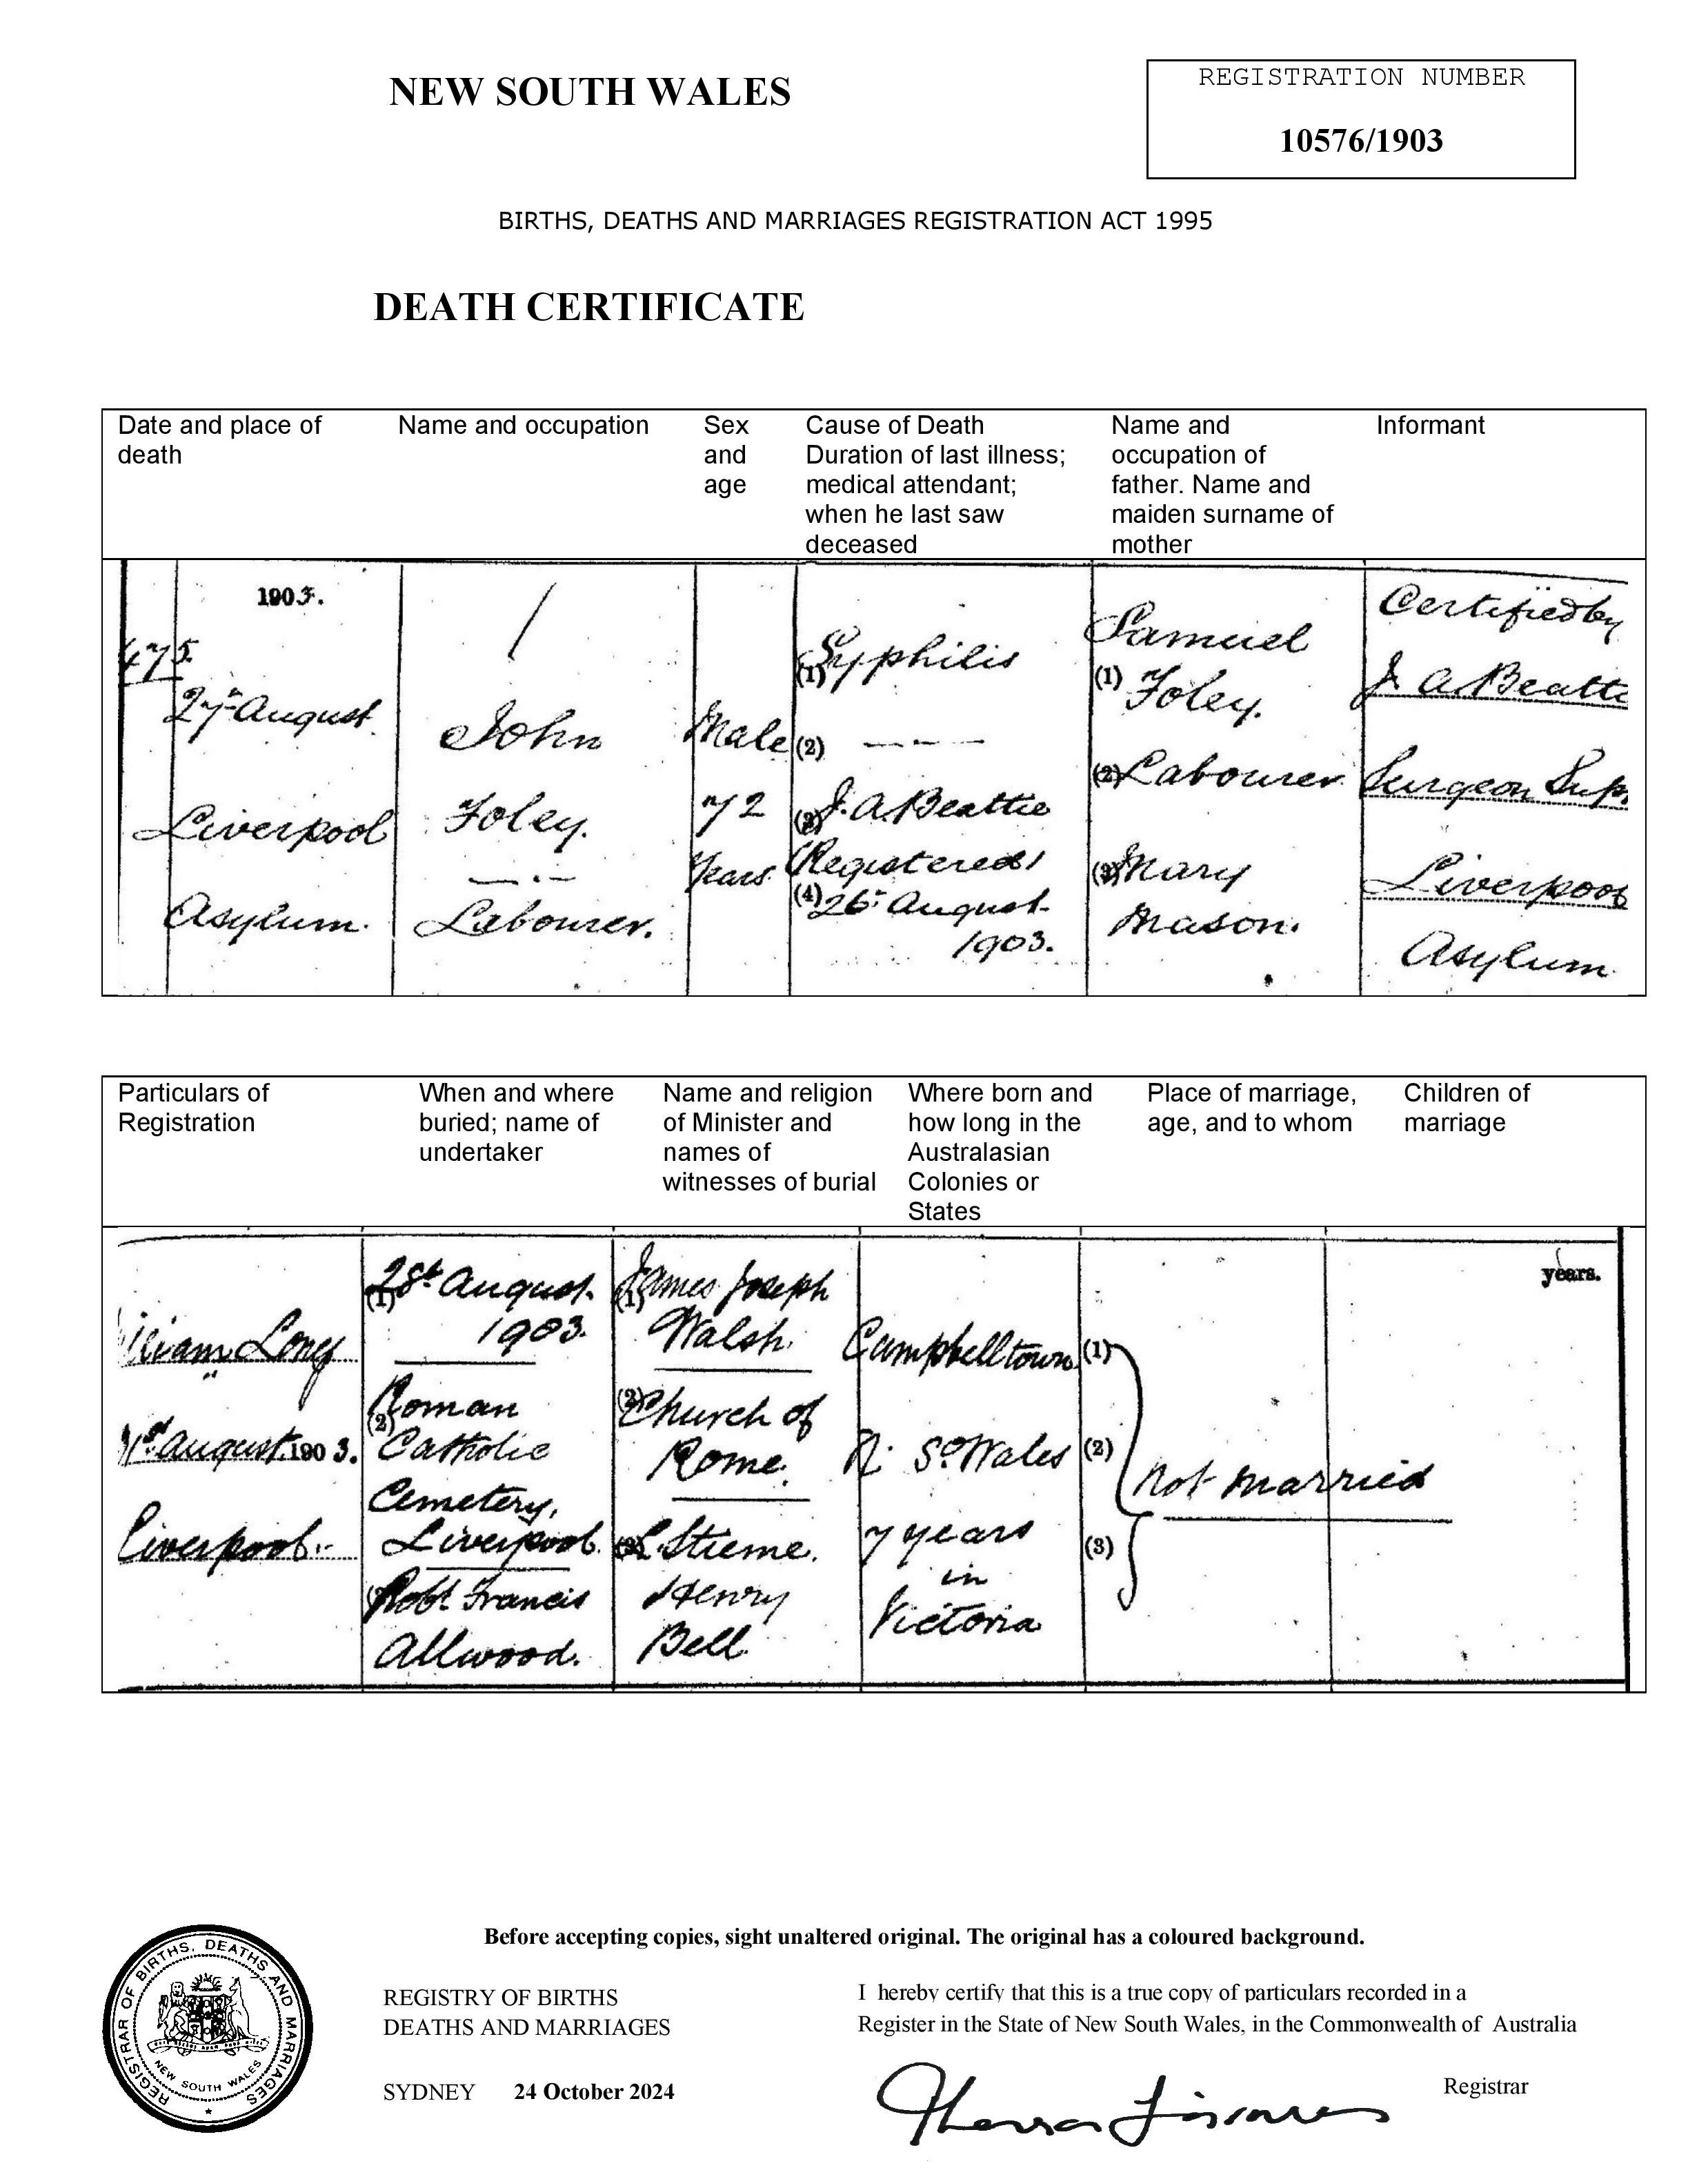 NEW SOUTH WALES
REGISTRATION NUMBER
10576/1903
BIRTHS, DEATHS AND MARRIAGES REGISTRATION ACT 1995
DEATH CERTIFICATE
Date and place of
death
Name and occupation
Sex
and
age
Cause of Death
Duration of last illness;
medical attendant;
when he last saw
deceased
Name and
occupation of
father. Name and
maiden surname of
mother
Informant
1903.
475
27th August
Liverpool
Asylum.
John
Foley.
Labourer.
Male
72
Years
(1) Syphilis
(2)
(3) J. A. Beattie
Registered
(4) 26th August
1903.
Samuel
(1) Foley.
(2) Labourer
(3) Mary
Mason.
Certified by
J A Beattie
Surgeon Sup.
Liverpool
Asylum
Particulars of
Registration
When and where
buried; name of
undertaker
Name and religion
of Minister and
names of
witnesses of burial
Where born and
how long in the
Australasian
Colonies or
States
Place of marriage,
age, and to whom
Children of
marriage
Long
August 1903.
Liverpool
(1) 28th August.
1903.
(2) Roman
Catholic
Cemetery,
Liverpool.
Robt Francis
Allwood.
(1) James Joseph
Walsh.
(2) Church of
Rome.
Henry
Bell
Campbelltown
N. So Wales
7 years
in
Victoria
(1)
(2)
(3)
Not Married
years.
Before accepting copies, sight unaltered original. The original has a coloured background.
REGISTRAR OF BIRTHS, DEATHS AND MARRIAGES
NEW SOUTH WALES
REGISTRY OF BIRTHS
DEATHS AND MARRIAGES
SYDNEY 24 October 2024
I hereby certify that this is a true copy of particulars recorded in a
Register in the State of New South Wales, in the Commonwealth of Australia
Registrar